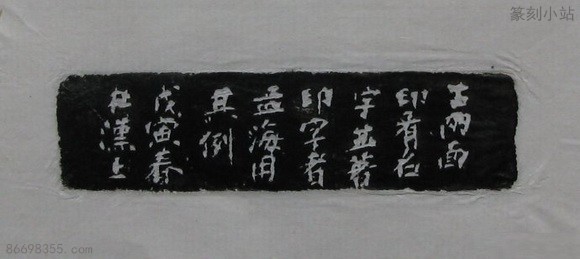 篆刻小站
古兩面
印有
字並著
印字者
孟海用
其例
戊寅春
在漢上
86698355.com